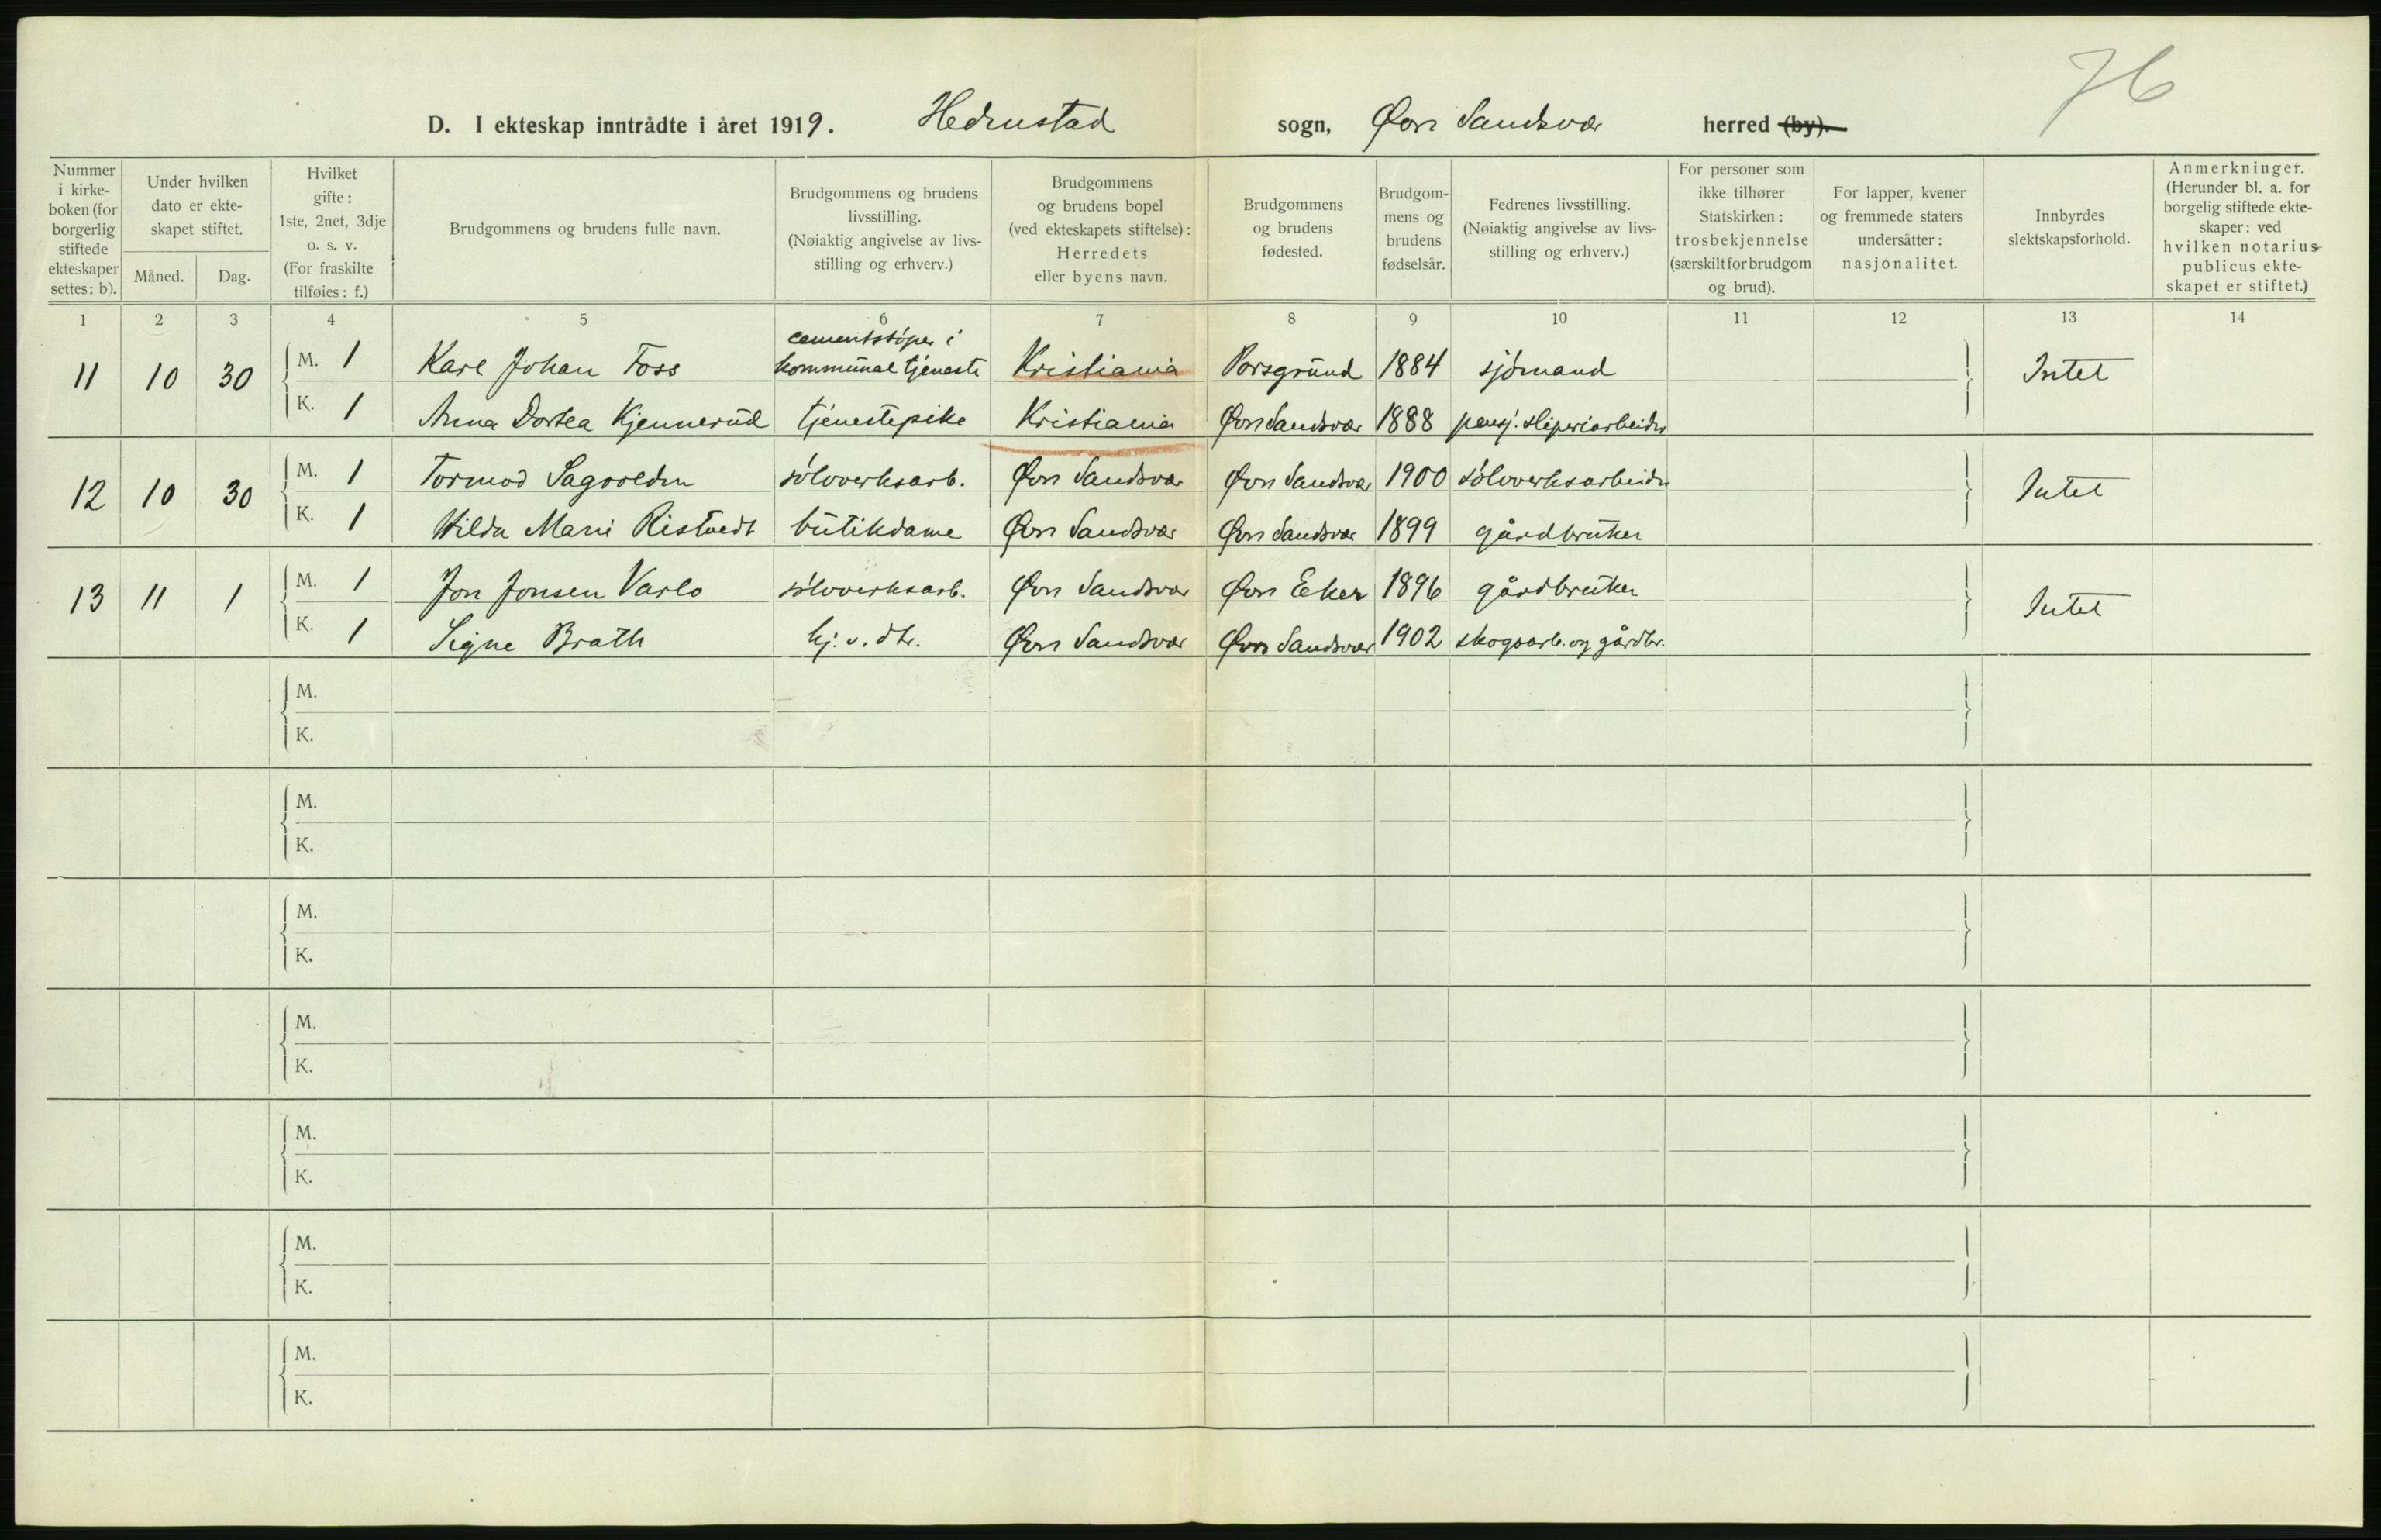 76
D. I ekteskap inntrådte i året 1919. Hedenstad sogn, Øvre Sandsvær herred (by).
Nummer i kirke-boken (for borgerlig stiftede ekteskaper settes: b).
Under hvilken dato er ekte-skapet stiftet.
Måned.
Dag.
Hvilket gifte: 1ste, 2net, 3dje o. s. v. (For fraskilte tilføies: f.)
Brudgommens og brudens fulle navn.
Brudgommens og brudens livsstilling. (Nøiaktig angivelse av livs-stilling og erhverv.)
Brudgommens og brudens bopel (ved ekteskapets stiftelse): Herredets eller byens navn.
Brudgommens og brudens fødested.
Brudgom-mens og brudens fødselsår.
Fedrenes livsstilling. (Nøiaktig angivelse av livs-stilling og erhverv.)
For personer som ikke tilhører Statskirken: trosbekjennelse (særskilt for brudgom og brud).
For lapper, kvener og fremmede staters undersåtter: nasjonalitet.
Innbyrdes slektskapsforhold.
Anmerkninger. (Herunder bl. a. for borgelig stiftede ekte-skaper: ved hvilken notarius publicus ekte-skapet er stiftet.)
1 2 3 4 5 6 7 8 9 10 11 12 13 14
11 10 30 M. 1 Karl Johan Foss cementstöper i kommunal tjeneste Kristiania Porsgrund 1884 sjömand Intet
K. 1 Anna Dortea Kjennerud tjenestepike Kristiania Øvre Sandsvær 1888 pensj. sliperiarbeider
12 10 30 M. 1 Tormod Sagvolden sölvverksarb. Øvre Sandsvær Øvre Sandsvær 1900 sölvverksarbeider Intet
K. 1 Hilda Marie Ristvedt butikdame Øvre Sandsvær Øvre Sandsvær 1899 gårdbruker
13 11 1 M. 1 Jon Jonsen Varlo sölvverksarb. Øvre Sandsvær Øvre Eker 1896 gårdbruker Intet
K. 1 Signe Bråth hj. v. dtr. Øvre Sandsvær Øvre Sandsvær 1902 skogsarb. og gårdbr.
M.
K.
M.
K.
M.
K.
M.
K.
M.
K.
M.
K.
M.
K.